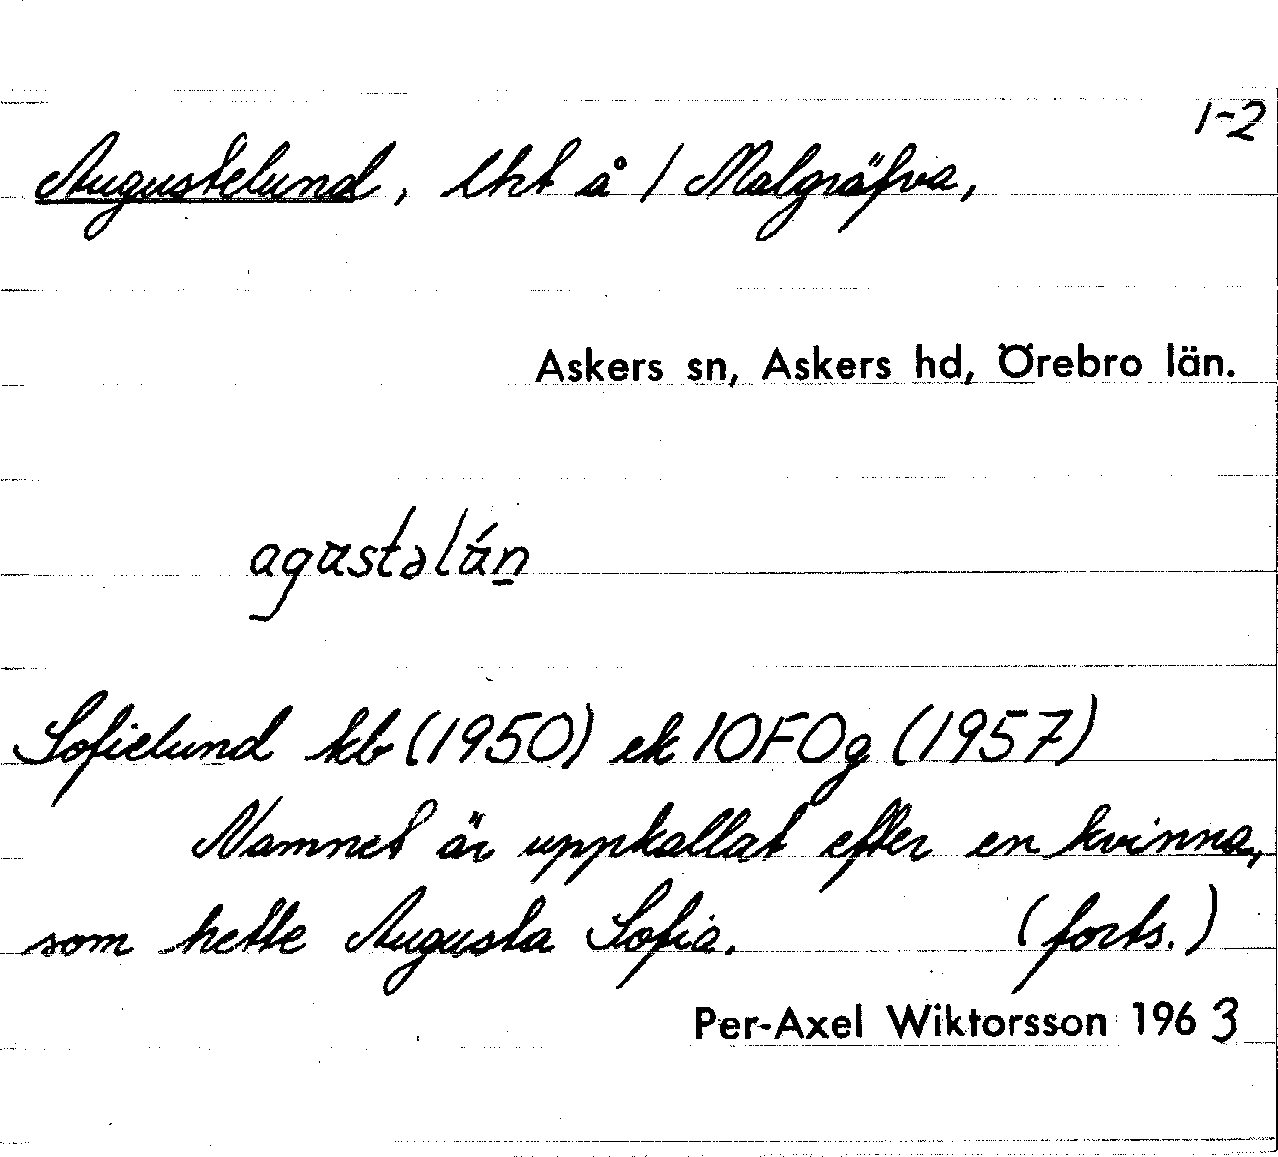 1-2
Augustelund, lht å 1 Malgräfva,
Askers sn, Askers hd, Örebro län.
agustəlún
Sofielund kb (1950) ek 10F0g (1957)
Namnet är uppkallat efter en kvinna,
som hette Augusta Sofia. (forts.)
Per-Axel Wiktorsson 1963